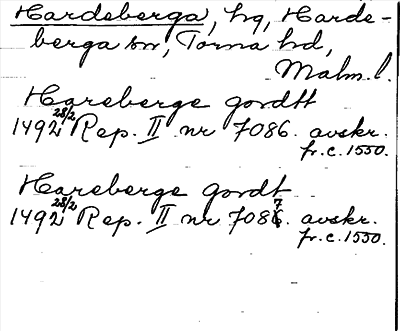 Hardeberga, hg, Harde-
berga sn, Torna hd,
Malm. l.
Hareberge gordtt
1492 28/2 Rep. II nr 7086. avskr.
fr. c. 1550.
Hareberge gordt
1492 28/2 Rep. II nr 7087. avskr.
fr. c. 1550.